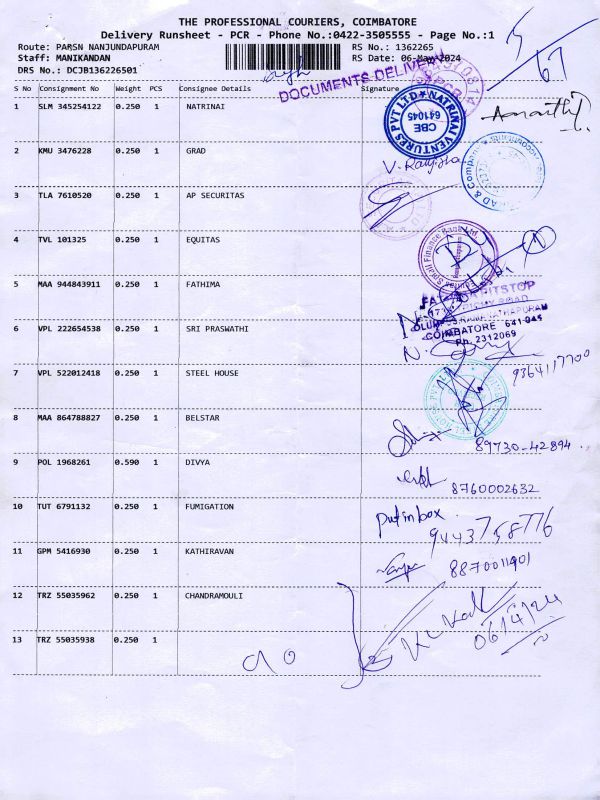 THE PROFESSIONAL COURIERS, COIMBATORE
Delivery Runsheet - PCR - Phone No.:0422-3505555 - Page No.:1
Route: PARSN NANJUNDAPURAM RS No.: 1362265
Staff: MANIKANDAN RS Date: 06-May-2024
DRS No.: DCJB136226501
DOCUMENTS DELIVERY
5/67
S No Consignment No Weight PCS Consignee Details Signature
1 SLM 345254122 0.250 1 NATRINAI
NATRINAI VENTURES PVT LTD
CBE
641045
2 KMU 3476228 0.250 1 GRAD
3 TLA 7610520 0.250 1 AP SECURITAS
4 TVL 101325 0.250 1 EQUITAS
Small Finance Bank Ltd
5 MAA 944843911 0.250 1 FATHIMA
PITSTOP
6 VPL 222654538 0.250 1 SRI PRASWATHI
COIMBATORE 641 045
Ph. 2312069
7 VPL 522012418 0.250 1 STEEL HOUSE
9364117700
8 MAA 864788827 0.250 1 BELSTAR
89730-42894
9 POL 1968261 0.590 1 DIVYA
8760002632
10 TUT 6791132 0.250 1 FUMIGATION
Put in box
9443758776
11 GPM 5416930 0.250 1 KATHIRAVAN
8870011901
12 TRZ 55035962 0.250 1 CHANDRAMOULI
13 TRZ 55035938 0.250 1